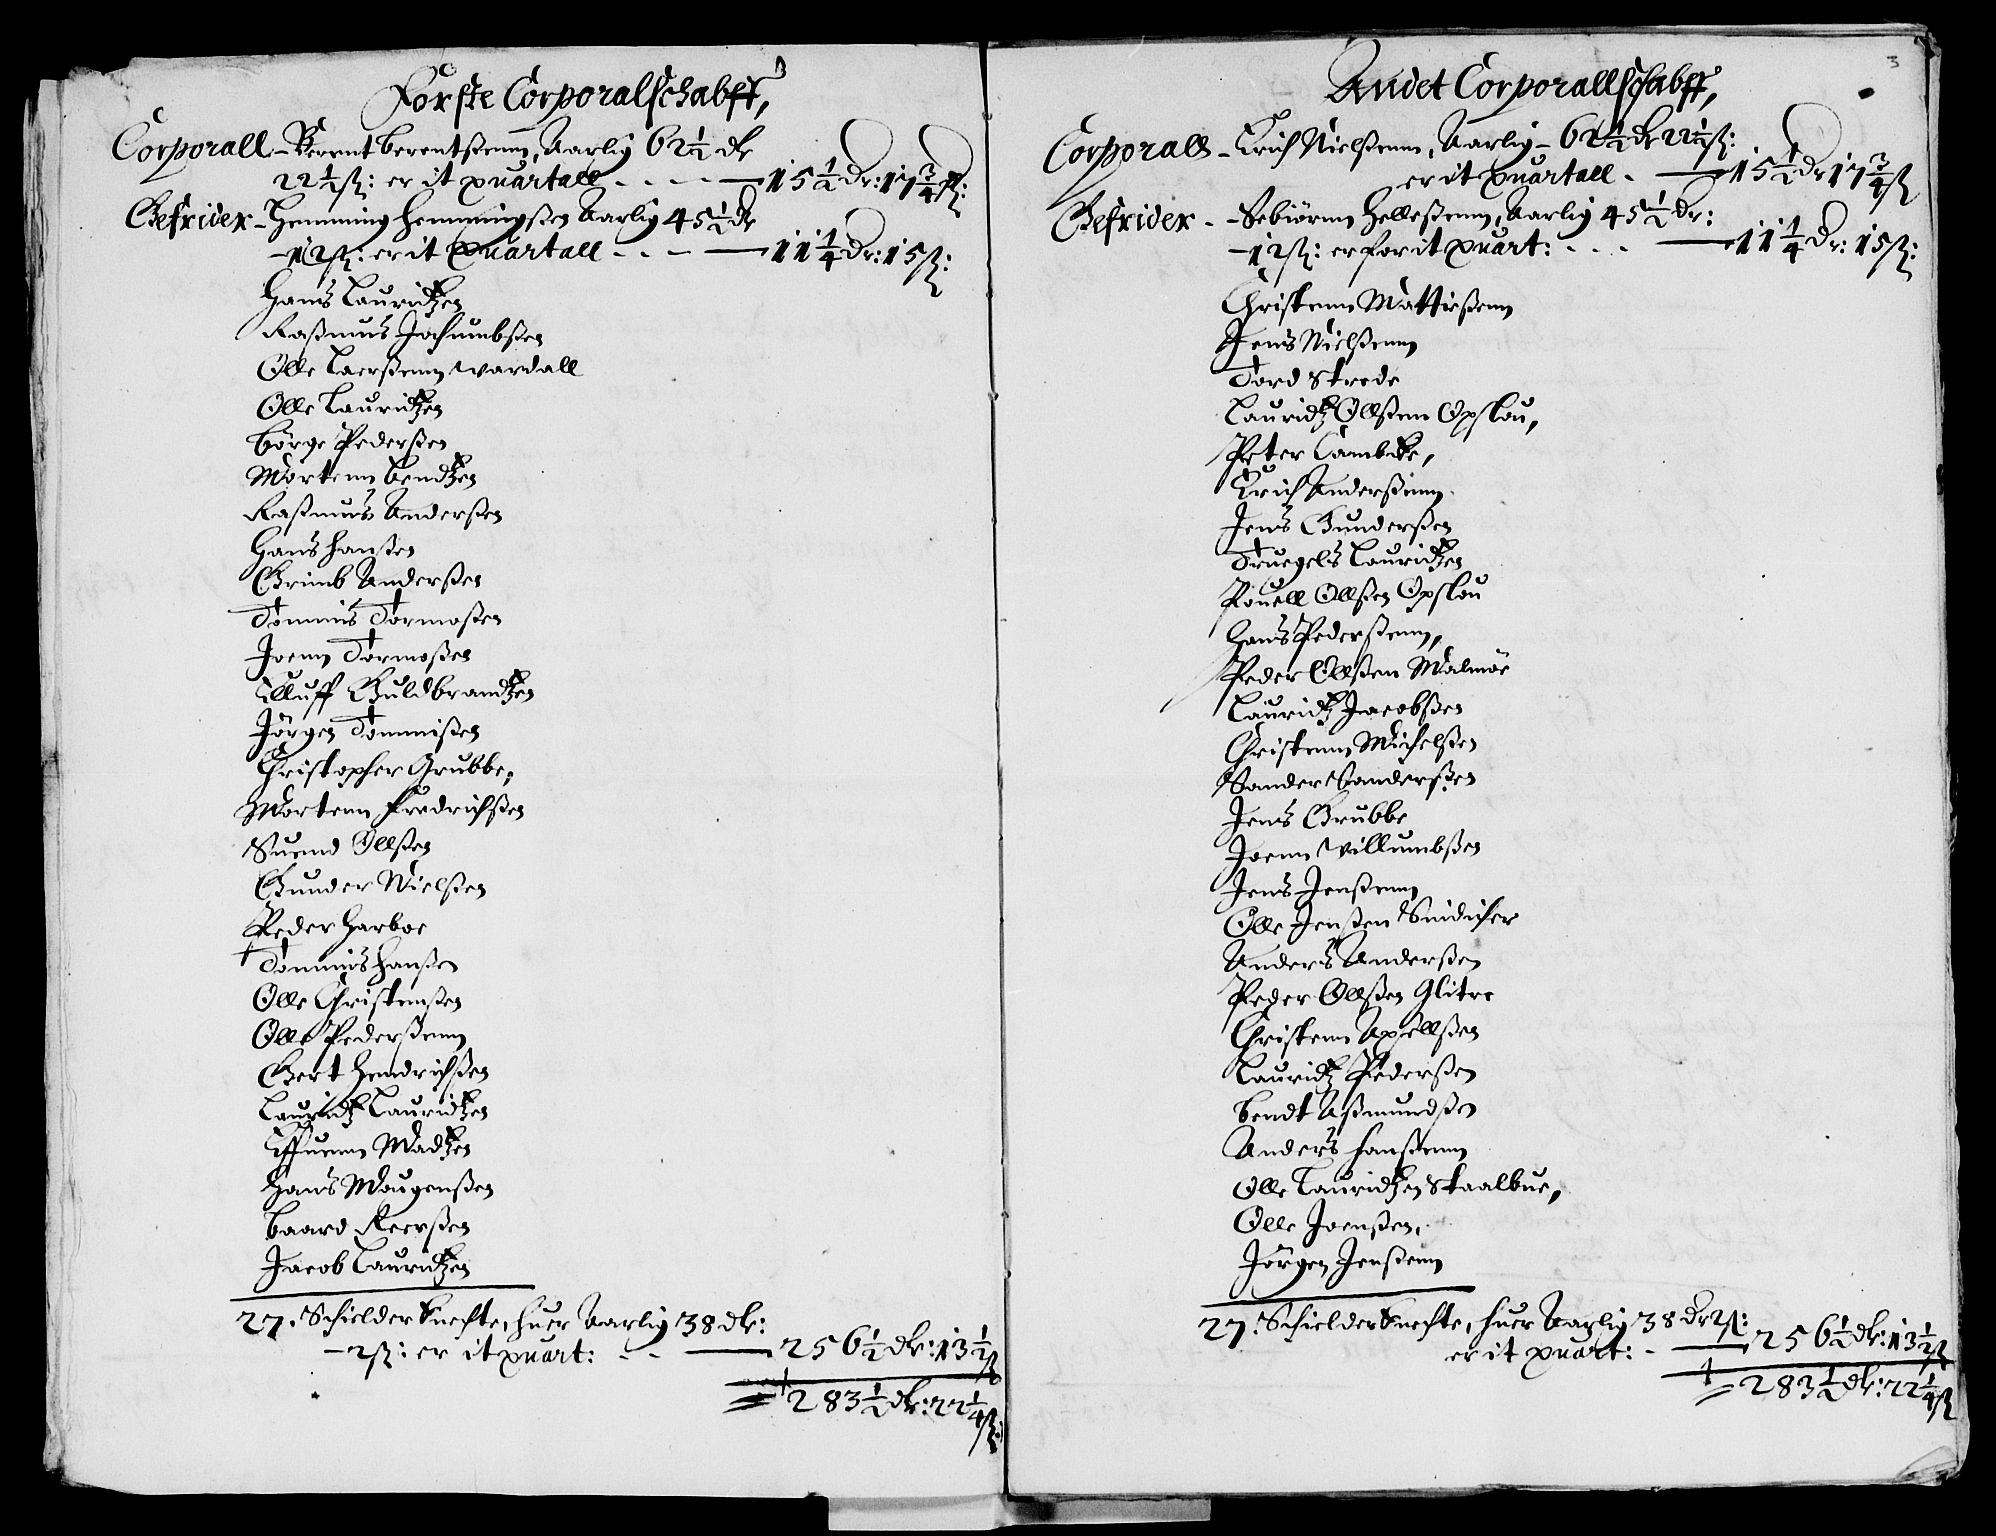 Förste Corporalschabff,
Corporall - Berent berentßenn, Aarlig 62½ dr
22½ ß: er it quartall - - - 15½ dr: 17¾ ß:
Gefrider - Hemming hemmingßen Aarlig 45½ dr
12 ß: er it quartall - - - 11¼ dr: 15 ß:
Hans Lauridtzen
Raßmus Jachumbßen
Olle Laerßenn Wardall
Olle Lauridtzen
Börge Pederßen
Mortenn bendtzen
Raßmus Anderßen
Hans hanßen
Grimb Anderßen
Tommis Tormoßen
Joenn Tormoßen
Elluff Guldbrandtzen
Jörgen Tommißen
Christopher Grubbe,
Mortenn Fredrichßen
Suend Ollßen
Gunder Nielßen
Peder Harboe
Tommis hanßen
Olle Christenßen
Olle Pederßenn
Gert Hendrichßen
Lauridtz Lauridtzen
Effuenn Madtzen
Hans Mougenßen
baard Reerßen
Jacob Lauridtzen
27. Schielderknechte, huer Aarlig 38 dr:
2 ß: er it quart: - - 256½ dr: 13½ ß
283½ dr: 22¼ ß:
3
Andet Corporallschabff,
Corporall - Erich Nielßenn, Aarlig - 62½ dr 22½ ß:
er it quartall - 15½ dr 17¾ ß
Gefrider - - Sebiörnn Helleßenn, Aarlig 45½ dr:
12 ß: er for it quart: - - - 11¼ dr: 15 ß:
Christenn Mattießenn
Jens Nielßenn
Tord Strede
Lauridtz Ollßenn Opslou,
Peter Lambcke,
Erich Anderßenn
Jens Gunderßen
Truegels Lauridtzen
Pouell Ollßen Opslou
Hans Pederßenn,
Peder Ollßen Malmöe
Lauridtz Jacobßen
Christenn Michelßen
Sander Sanderßen
Jens Grubbe
Joenn Willumbßen
Jens Jenßenn
Olle Jenßen Snidicher
Anders Anderßen
Peder Ollßen Glitre
Christenn Axellßen
Lauridtz Pederßen
bendt Aßmundßen
Anders hanßenn
Olle Lauridtzen Staalbue,
Olle Joenßen,
Jörgen Jenßenn
27. Schielderknechte, huer Aarlig 38 dr 2 ß:
er it quart: - 256½ dr: 13½ ß
283½ dr: 22¼ ß